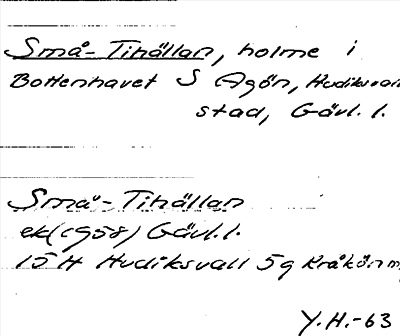 Små-Tihällan, holme i
Bottenhavet S Agön, Hudiksvall
stad, Gävl. l.
Små-Tihällan
ek(1958) Gävl. l.
15H Hudiksvall 5g Kråkön
Y.H.-63